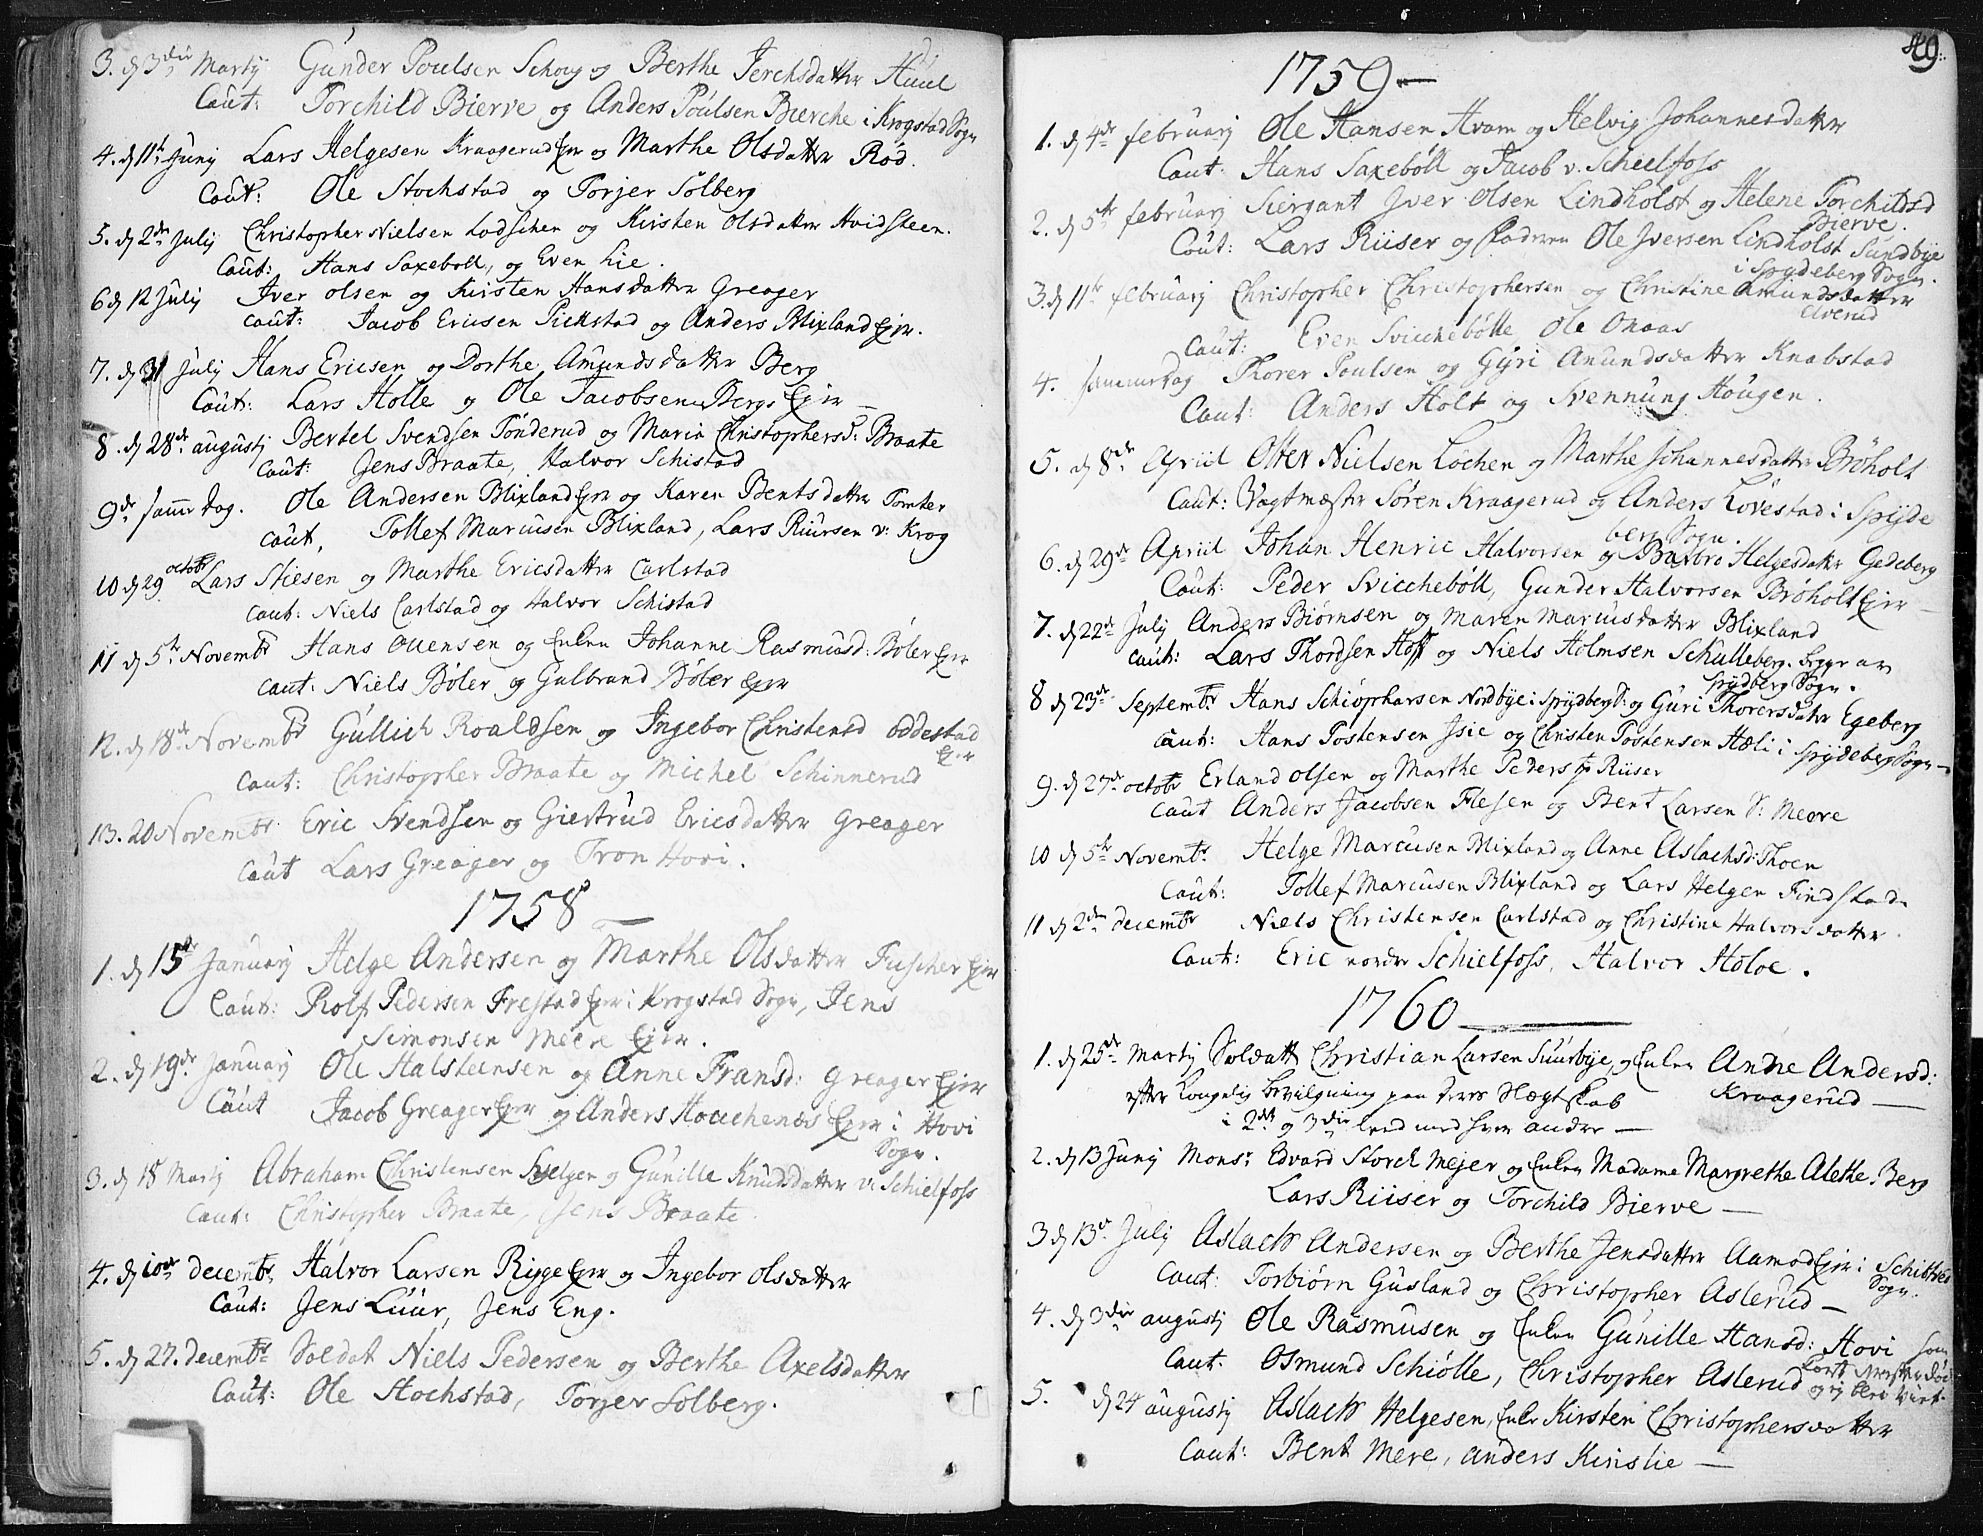 3. d 3die Martij Gunder Poulsen Schou og Berthe Jerchsdatter Huul
Caut: Torchild Bierve og Anders Poulsen Bierche i Krogstad Sogn
4. d 11te Junij Lars Helgesen Kraagerud Ejer og Marthe Olsdatter Rød.
Caut: Ole Stochstad og Torjer Solberg
5. d 2den Julij Christopher Nielsen Lodschen og Kirsten Olsdatter Hvidsteen.
Caut: Hans Saxeboll, og Even Lie.
6 d 12 Julij Iver Olsen og Kirsten Hansdatter Greager
Caut: Jacob Ericsen Sichstad og Anders Blixland Ejer.
7. d 31 Julij Hans Ericsen og Dorthe Amundsdatter Berg
Caut: Lars Holle og Ole Jacobsen Bergs Ejer —
8. d 28de augustj Bertel Svendsen Tønderud og Maria Christophersd: Braate
Caut: Jens Braate, Halvor Schistad
9de samme dag. Ole Andersen Blixland Ejer og Karen Bentsdatter Tomter
Caut, Tollef Marcusen Blixland, Lars Riiersen v: Krog
10 d 29 octobr Lars Stiesen og Marthe Ericsdatter Carlstad
Caut: Niels Carlstad og Halvor Schistad
11 d 5te Novembr Hans Ouensen og Enken Johanne Rasmusd: Bøler Ejer
Caut: Niels Bøler og Gulbrand Bøler Ejer
12. d 18de Novembr Gullich Roaldsen og Ingebor Christensd Oddestad
Ejer
Caut: Christopher Braate og Michel Schinnerud
13. 20 Novembr Eric Svendsen og Giertrud Ericsdatter Greager
Caut Lars Greager og Tron Hovi.
1758 —
1. d 15de Januarj Helge Andersen og Marthe Olsdatter Fuscher Ejer
Caut: Rolf Pedersen Frestad Ejer i Krogstad Sogn, Jens
Simonsen Meere Ejer.
2. d 19de Januarj Ole Halsteensen og Anne Fransd: Greager Ejer
Caut Jacob Greager Ejer og Anders Houchenæs Ejer i Hovi
Sogn.
3. d 18 Martj Abraham Christensen Svelgen og Gunille Knudsdatter v: Schielfoss
Caut: Christopher Braate, Jens Braate.
4. d 10de decembr, Halvor Larsen Rigge Ejer og Ingebor Olsdatter
Caut: Jens Luur, Jens Eng.
5. d 27. decembr Soldat Niels Pedersen og Berthe Axelsdatter
Caut: Ole Stochstad, Torjer Solberg.
49.
1759 —
1. d 4de februarj Ole Hansen Hvam og Helvig Johannesdatter
Caut: Hans Saxeböll og Jacob v. Schielfoss
2. d 5te februarj Siersant Iver Olsen Lindholst og Helene Torchildsd
Bierve.
Caut: Lars Riiser og Faderen Ole Iversen Lindholst Sundbye
i Spydeberg Sogn.
3. d 11te februarj Christopher Christophersen og Christine Amundsdatter
Elverud
Caut: Even Svicchebölle Ole Onaas
4. sammedag Thorer Poulsen og Gyri Anundsdatter Knabstad
Caut: Anders Holt og Svennung Hougen.
5. d 8de Apriil Ofter Nielsen Lochen og Marthe Johannesdatter Brøholt
Caut: Vagtmæster Søren Kraagerud og Anders Løvestad i Spyde
berg Sogn.
6. d 29de Apriil Johan Henric Halvorsen og Barbro Helgesdatter Gedeberg
Caut: Peder Svicchebøll, Gunder Halvorsen Brøholt Ejer —
7. d 22de Julij Anders Biørnsen og Maren Marcusdatter Blixland
Caut: Lars Thordsen Hoff og Niels Holmsen Schulleberg. begge av
Spydberg Sogn.
8 d 23de Septembr Hans Schiøpharsen Nordbye i Spydberg: og Guri Thorersdatter Egeberg
Caut: Hans Tostensen Isie og Christen Tostensen Hæli i Spydeberg Sogn
9. d 27de octobr Erland Olsen og Marthe Peders Riiser
Caut Anders Jacobsen Flesen og Bent Larsen S: Meere
10 d 5te Novembr. Helge Marcusen Blixland og Anne Aslachsd: Thoen
Caut: Tollef Marcusen Blixland og Lars Helgen Findstad.
11 d 2den decembr Niels Christensen Carlstad og Christine Halvorsdatter
Caut: Eric nordre Schielfoss, Halvor Holoe.
1760 —
1. d 25de Martj Soldatt Christian Larsen Suurbye, og Enken Andre Andersd:
Kraagerud —
efter Kongelig bevilgning paa deres Slegtskab
i 2det og 3die leed med hver andre —
2. d 13 Junij Monsr. Edvard Storck Mejer og Enken Madame Margrethe Alethe Berg
Lars Riiser og Torchild Bierve —
3 d 13de Julij Aslach Andersen og Berthe Jensdatter Aamod Ejer i Schibtved
Sogn.
Caut: Torbiørn Gusland og Christopher Aslerud —
4. d 3die augustj Ole Rasmusen og Enken Gunille Hansd: Hovi som
kort derefter døde
og ej blev viet.
Caut: Osmund Schiølle, Christopher Aslerud
5. d 24 augustj Aslach Helgesen, Enke Kirsten Christophersdatter
Caut: Bent Mere, Anders Kinslie —